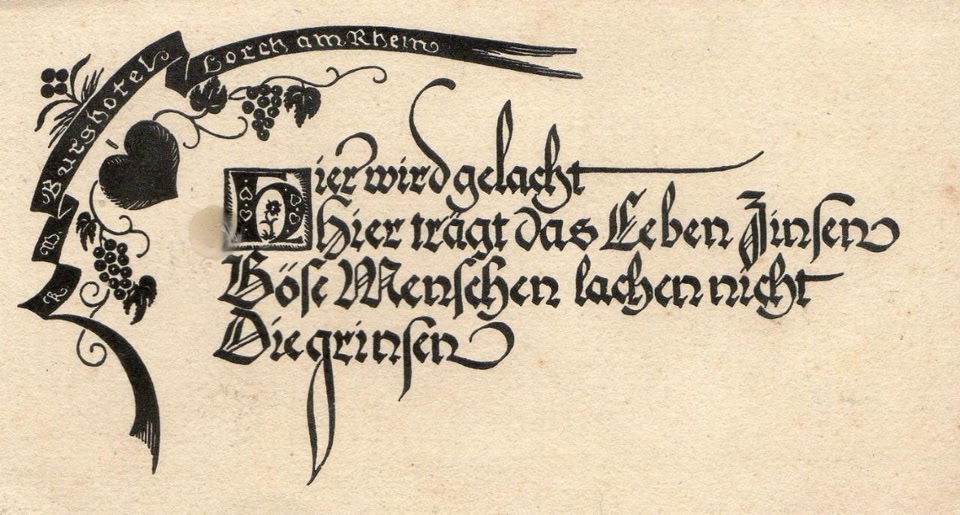 Burghotel Lorch am Rhein
Hier wird gelacht
Hier trägt das Leben Zinsen
Böse Menschen lachen nicht
Die grinsen